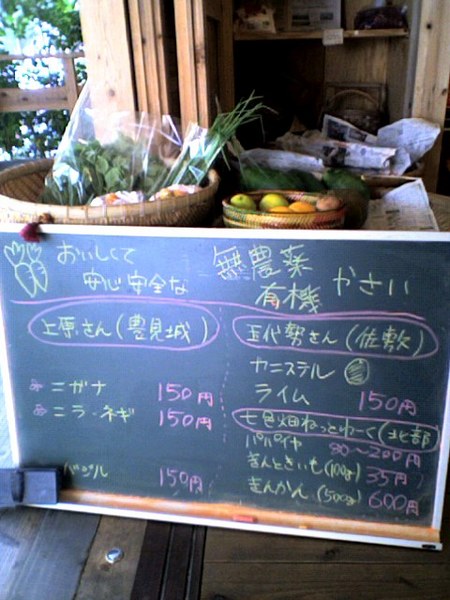 おいしくて
安心安全な
無農薬
有機 やさい
上原さん(豊見城)
ニガナ 150円
ニラ・ネギ 150円
バジル 150円
玉代勢さん(佐敷)
カニステル
ライム 150円
七色畑ねっとわーく(北部)
パパイヤ 80〜200円
きんときいも(100g) 35円
きんかん(500g) 600円